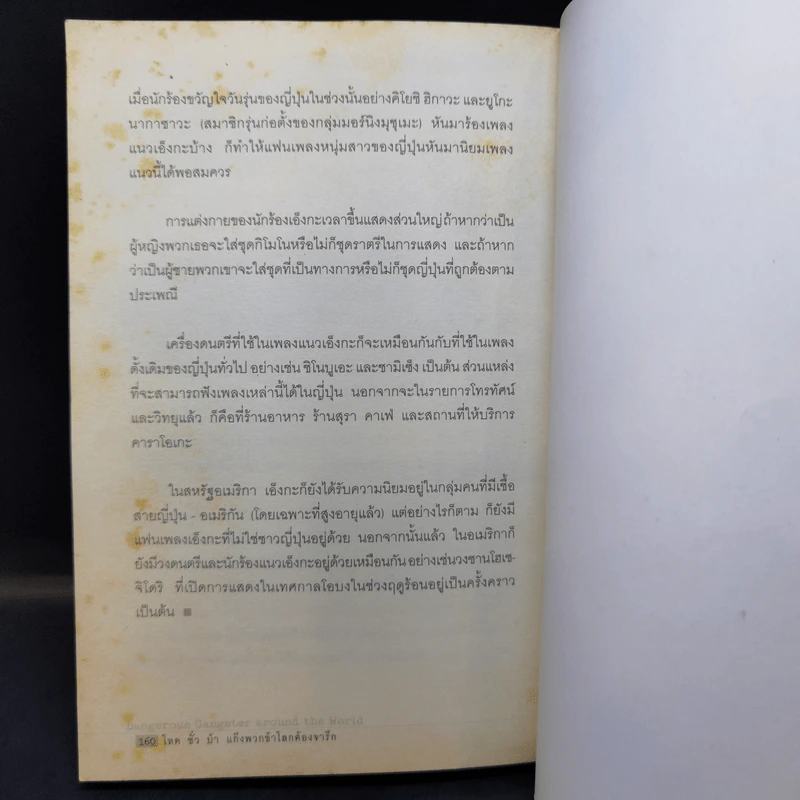 เมื่อนักร้องขวัญใจวันรุ่นของญี่ปุ่นในช่วงนั้นอย่างคิโยชิ ฮิกาวะ และยูโกะ
นากาซาวะ (สมาชิกรุ่นก่อตั้งของกลุ่มมอร์นิงมุซุเมะ) หันมาร้องเพลง
แนวเอ็งกะบ้าง ก็ทำให้แฟนเพลงหนุ่มสาวของญี่ปุ่นหันมานิยมเพลง
แนวนี้ได้พอสมควร
การแต่งกายของนักร้องเอ็งกะเวลาขึ้นแสดงส่วนใหญ่ถ้าหากว่าเป็น
ผู้หญิงพวกเธอจะใส่ชุดกิโมโนหรือไม่ก็ชุดราตรีในการแสดง และถ้าหาก
ว่าเป็นผู้ชายพวกเขาจะใส่ชุดที่เป็นทางการหรือไม่ก็ชุดญี่ปุ่นที่ถูกต้องตาม
ประเพณี
เครื่องดนตรีที่ใช้ในเพลงแนวเอ็งกะก็จะเหมือนกันกับที่ใช้ในเพลง
ดั้งเดิมของญี่ปุ่นทั่วไป อย่างเช่น ชิโนบูเอะ และซามิเซ็ง เป็นต้น ส่วนแหล่ง
ที่จะสามารถฟังเพลงเหล่านี้ได้ในญี่ปุ่น นอกจากจะในรายการโทรทัศน์
และวิทยุแล้ว ก็คือที่ร้านอาหาร ร้านสุรา คาเฟ่ และสถานที่ให้บริการ
คาราโอเกะ
ในสหรัฐอเมริกา เอ็งกะก็ยังได้รับความนิยมอยู่ในกลุ่มคนที่มีเชื้อ
สายญี่ปุ่น - อเมริกัน (โดยเฉพาะที่สูงอายุแล้ว) แต่อย่างไรก็ตาม ก็ยังมี
แฟนเพลงเอ็งกะที่ไม่ใช่ชาวญี่ปุ่นอยู่ด้วย นอกจากนั้นแล้ว ในอเมริกาก็
ยังมีวงดนตรีและนักร้องแนวเอ็งกะอยู่ด้วยเหมือนกัน อย่างเช่นวงซานโฮเซ-
จิโดริ ที่เปิดการแสดงในเทศกาลโอบงในช่วงฤดูร้อนอยู่เป็นครั้งคราว
เป็นต้น ■
Dangerous Gangster around the World
160 โหด ชั่ว บ้า แก๊งพวกข้าโลกต้องจารึก